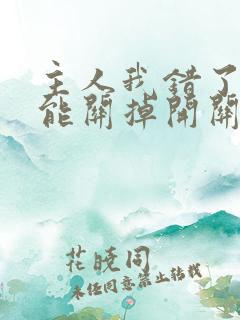 主人我错了
能關掉開關
花晓同
未经同意禁止转载